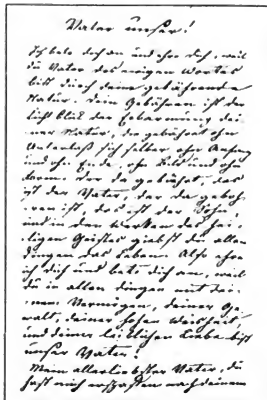 Vater unser!
Ich bete dich an und ehre dich, weil
du Vater des ewigen Wortes
bist durch deine gebährende
Natur. Dein Gebähren ist der
licht Blick der Erbarmung dei-
ner Natur, da gebährest ohn
Unterlaß sich selber ohn Anfang
und oh. Ende, ohn Bild und ohn
Der da gebähret, das
ist der Vater, der da geboh-
ren ist, das ist der Sohn,
und in den Werken des hei-
ligen Geistes giebst du allen
Dingen das Leben. Also ehre
ich dich und bete dich an, weil
du in allen Dingen mit dei-
nem Vermögen, deiner Ge-
walt, deiner hohen Weisheit
und deiner lieblichen Liebe bist
unser Vater!
Mein allerliebster Vater, du
hast mich erschaffen nach deinem